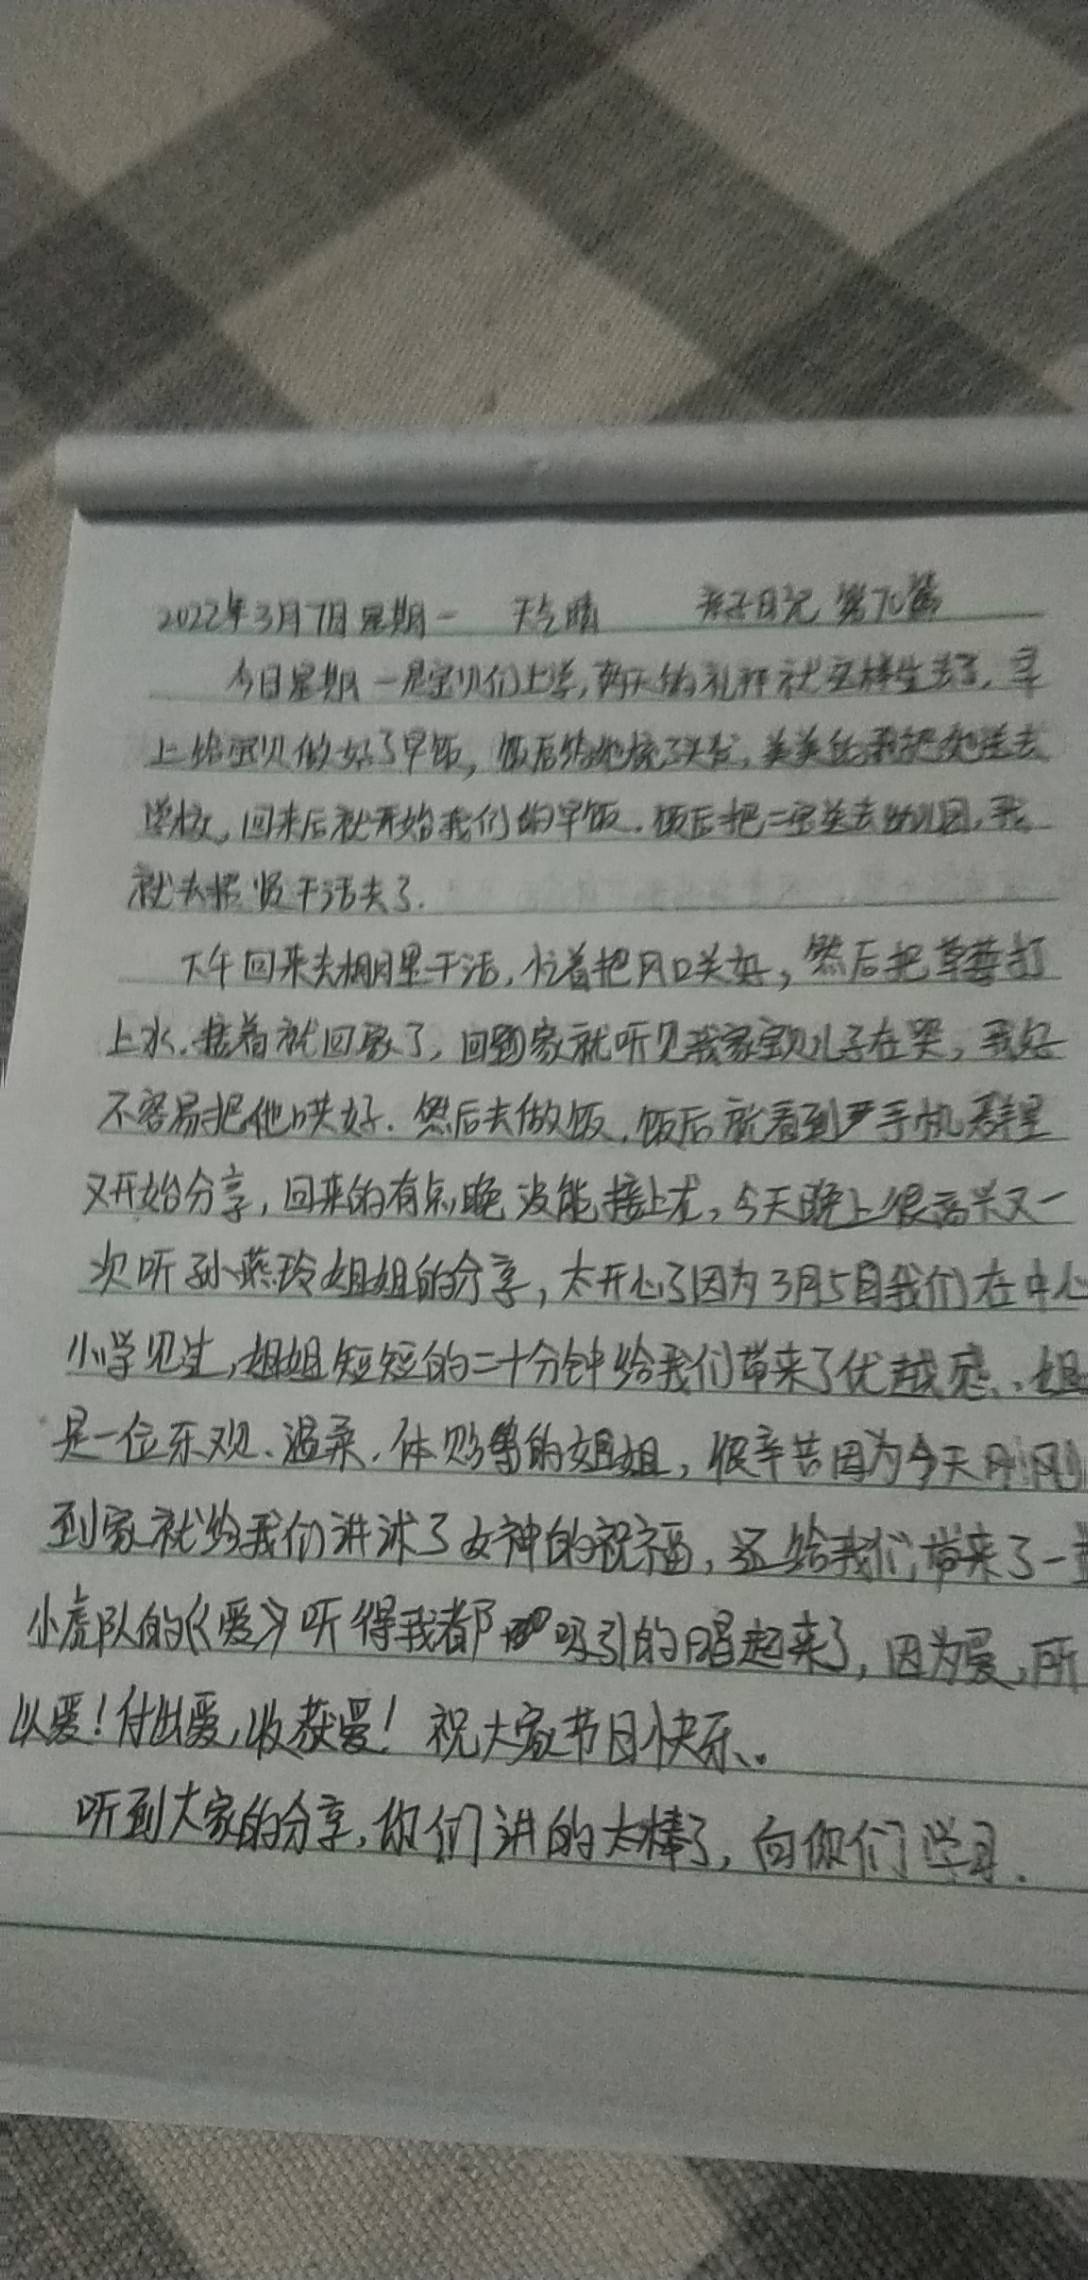 2022年3月7日星期一 天气晴 亲子日记 第70篇
今日星期一是宝贝们上学,两天的礼拜就这样失去了,早
上给宝贝做好了早饭,饭后给她梳了头发,美美我把她送去
学校,回来后就开始我们的早饭.饭后把二宝送去幼儿园,我
就去 干活去了.
下午回来去棚里干活,忙着把风口关好,然后把草莓打
上水.接着就回家了,回到家就听见我家宝贝儿子在哭,我好
不容易把他哄好.然后去做饭,饭后就看到手机群里
又开始分享,回来的有点晚没能接上龙,今天晚上很高兴又一
次听孙燕玲姐姐的分享,太开心了因为3月5日我们在中心
小学见过,姐姐短短的二十分钟给我们带来了优越感.姐
是一位乐观、温柔、体贴的姐姐,很辛苦因为今天刚刚
到家就给我们讲述了女神的祝福,还给我们带来了一首
小虎队的《爱》听得我都吸引的唱起来了,因为爱,所
以爱!付出爱,收获爱!祝大家节日快乐.
听到大家的分享,你们讲的太棒了,向你们学习.